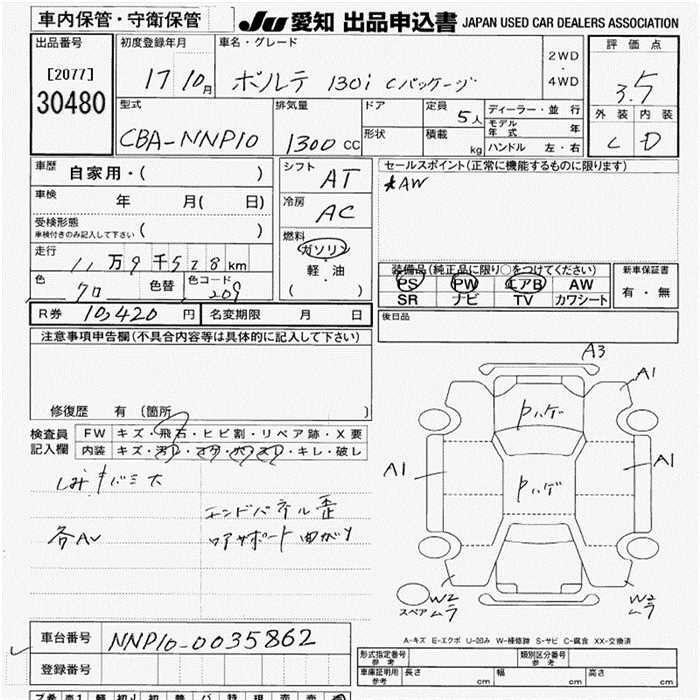 車内保管・守衛保管
JU 愛知 出品申込書 JAPAN USED CAR DEALERS ASSOCIATION
出品番号
[2077]
30480
初度登録年月
17 10月
車名・グレード
ポルテ 130i Cパッケージ
2WD
・
4WD
評価点
3.5
外装 内装
C D
型式
CBA-NNP10
排気量
1300 CC
ドア
形状
定員
5人
積載
kg
ディーラー・並行
モデル年式 年
ハンドル 左・右
車歴
自家用・( )
車検
年 月( 日)
受検形態
車検付きのみ記入して下さい ( )
走行
11万9千528km
色
クロ
色替
色コード
209
シフト
AT
冷房
AC
燃料
ガソリン
・
軽油
( )
セールスポイント(正常に機能するものに限ります)
AW
装備品(純正品に限り○をつけてください)
PS PW エアB AW
SR ナビ TV カワシート
新車保証書
有・無
R券 10,420円
名変期限 月 日
後日品
注意事項申告欄(不具合内容等は具体的に記入して下さい)
修復歴 有 (箇所 )
検査員
記入欄
FW キズ・飛石・ヒビ割・リペア跡・X要
内装 キズ・汚レ・コゲ・穴・スレ・キレ・破レ
エンドパネル歪
各AU
リアサポート曲がり
A3
A1
A1
A1
ハゲ
ハゲ
W2
ムラ
W2
ムラ
スペア
A-キズ E-エクボ U-凹み W-補修跡 S-サビ C-腐食 XX-交換済
車台番号
NNP10-0035862
登録番号
形式指定番号
参考
類別区分番号
参考
車庫証明用
参考
長さ cm 幅 cm 高さ cm